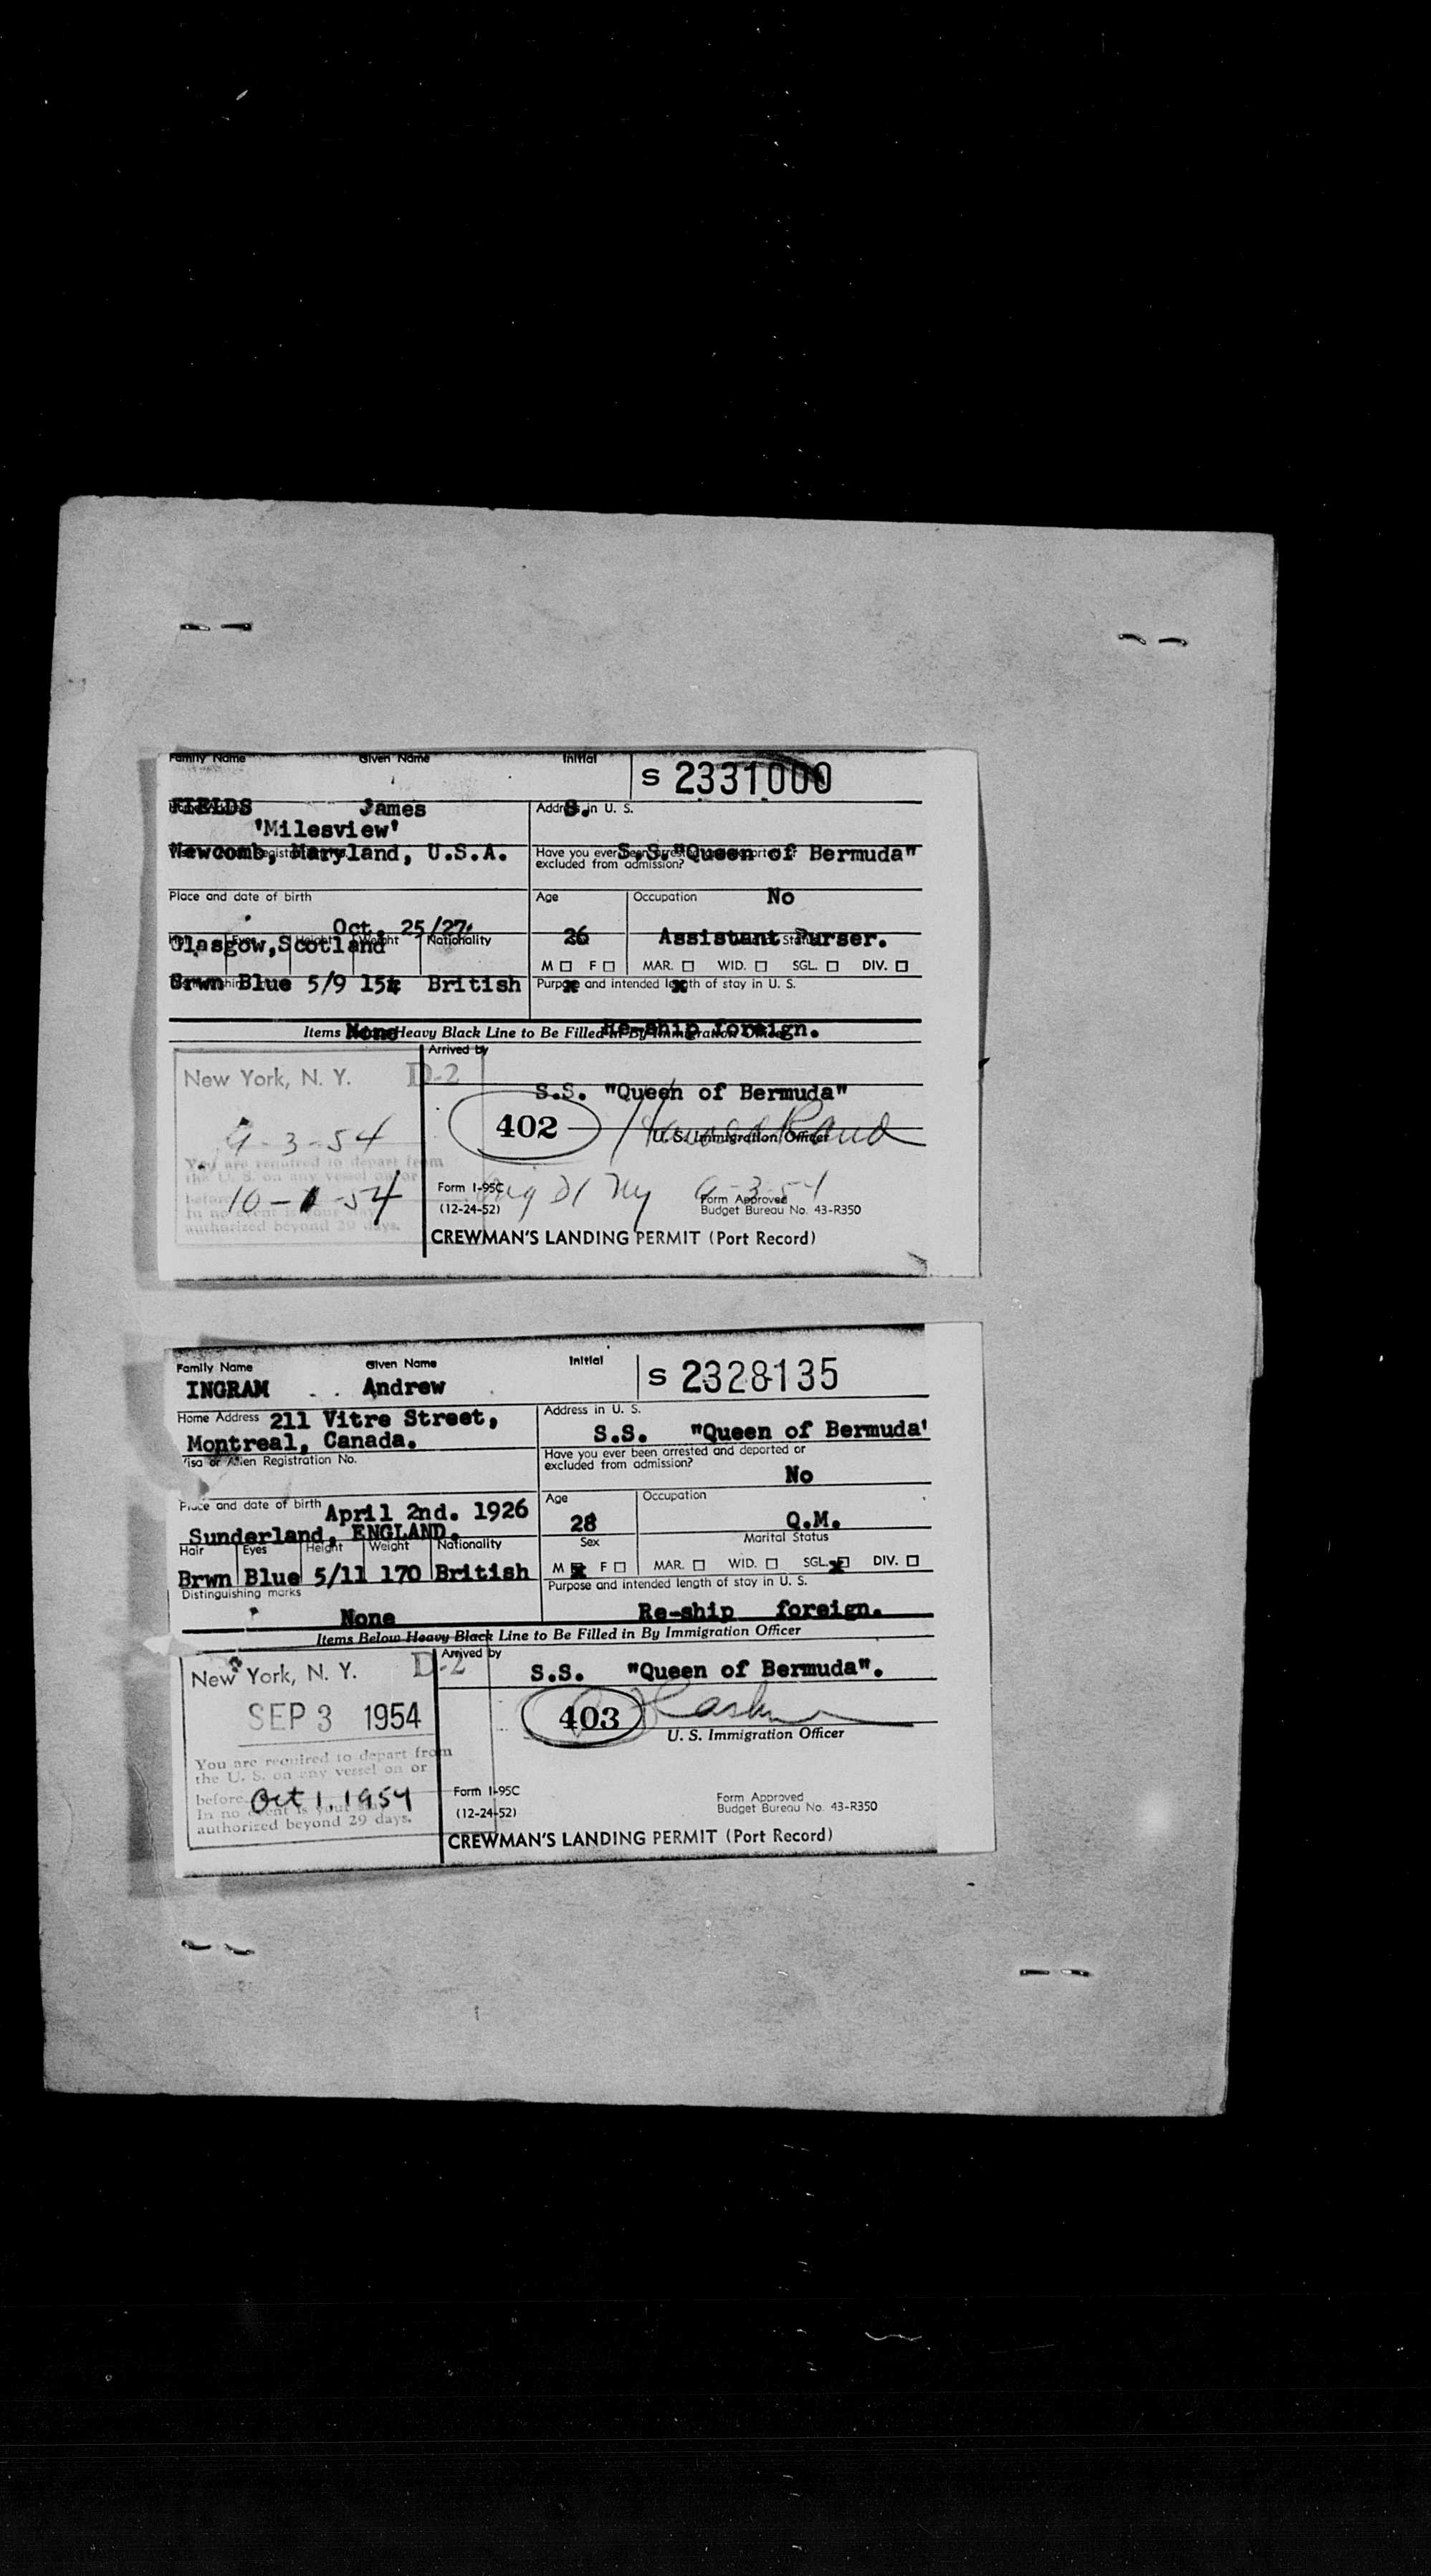 Family Name Given Name Initial S 2331000
FIELDS James S.
Address in U. S.
'Milesview'
Newcomb, Maryland, U.S.A.
S.S."Queen of Bermuda"
Have you ever been arrested and deported or
excluded from admission?
No
Place and date of birth
Oct. 25/27.
Glasgow,Scotland
Age Occupation
26 Assistant Purser.
Hair Eyes Height Weight Nationality
M □ F □ MAR. □ WID. □ SGL. □ DIV. □
x x
Brwn Blue 5/9 154 British
Purpose and intended length of stay in U. S.
None Re-ship foreign.
Items Below Heavy Black Line to Be Filled in By Immigration Officer
New York, N. Y. D-2
Arrived by
S.S. "Queen of Bermuda"
9-3-54
402
U. S. Immigration Officer
You are required to depart from
the U. S. on any vessel on or
before 10-1-54
In no event is your stay
authorized beyond 29 days.
Form I-95C
(12-24-52)
9-3-54
Form Approved
Budget Bureau No. 43-R350
CREWMAN'S LANDING PERMIT (Port Record)
Family Name Given Name Initial S 2328135
INGRAM Andrew
Home Address 211 Vitre Street,
Montreal, Canada.
Address in U. S.
S.S. "Queen of Bermuda'
Visa or Alien Registration No.
Have you ever been arrested and deported or
excluded from admission?
No
Place and date of birth April 2nd. 1926
Sunderland, ENGLAND.
Age Occupation
28 Q.M.
Sex Marital Status
Hair Eyes Height Weight Nationality
Brwn Blue 5/11 170 British
M x F □ MAR. □ WID. □ SGL. x DIV. □
Distinguishing marks
None
Purpose and intended length of stay in U. S.
Re-ship foreign.
Items Below Heavy Black Line to Be Filled in By Immigration Officer
New York, N. Y. D-2
Arrived by
S.S. "Queen of Bermuda".
SEP 3 1954
403
U. S. Immigration Officer
You are required to depart from
the U. S. on any vessel on or
before Oct 1, 1954
In no event is your stay
authorized beyond 29 days.
Form I-95C
(12-24-52)
Form Approved
Budget Bureau No. 43-R350
CREWMAN'S LANDING PERMIT (Port Record)